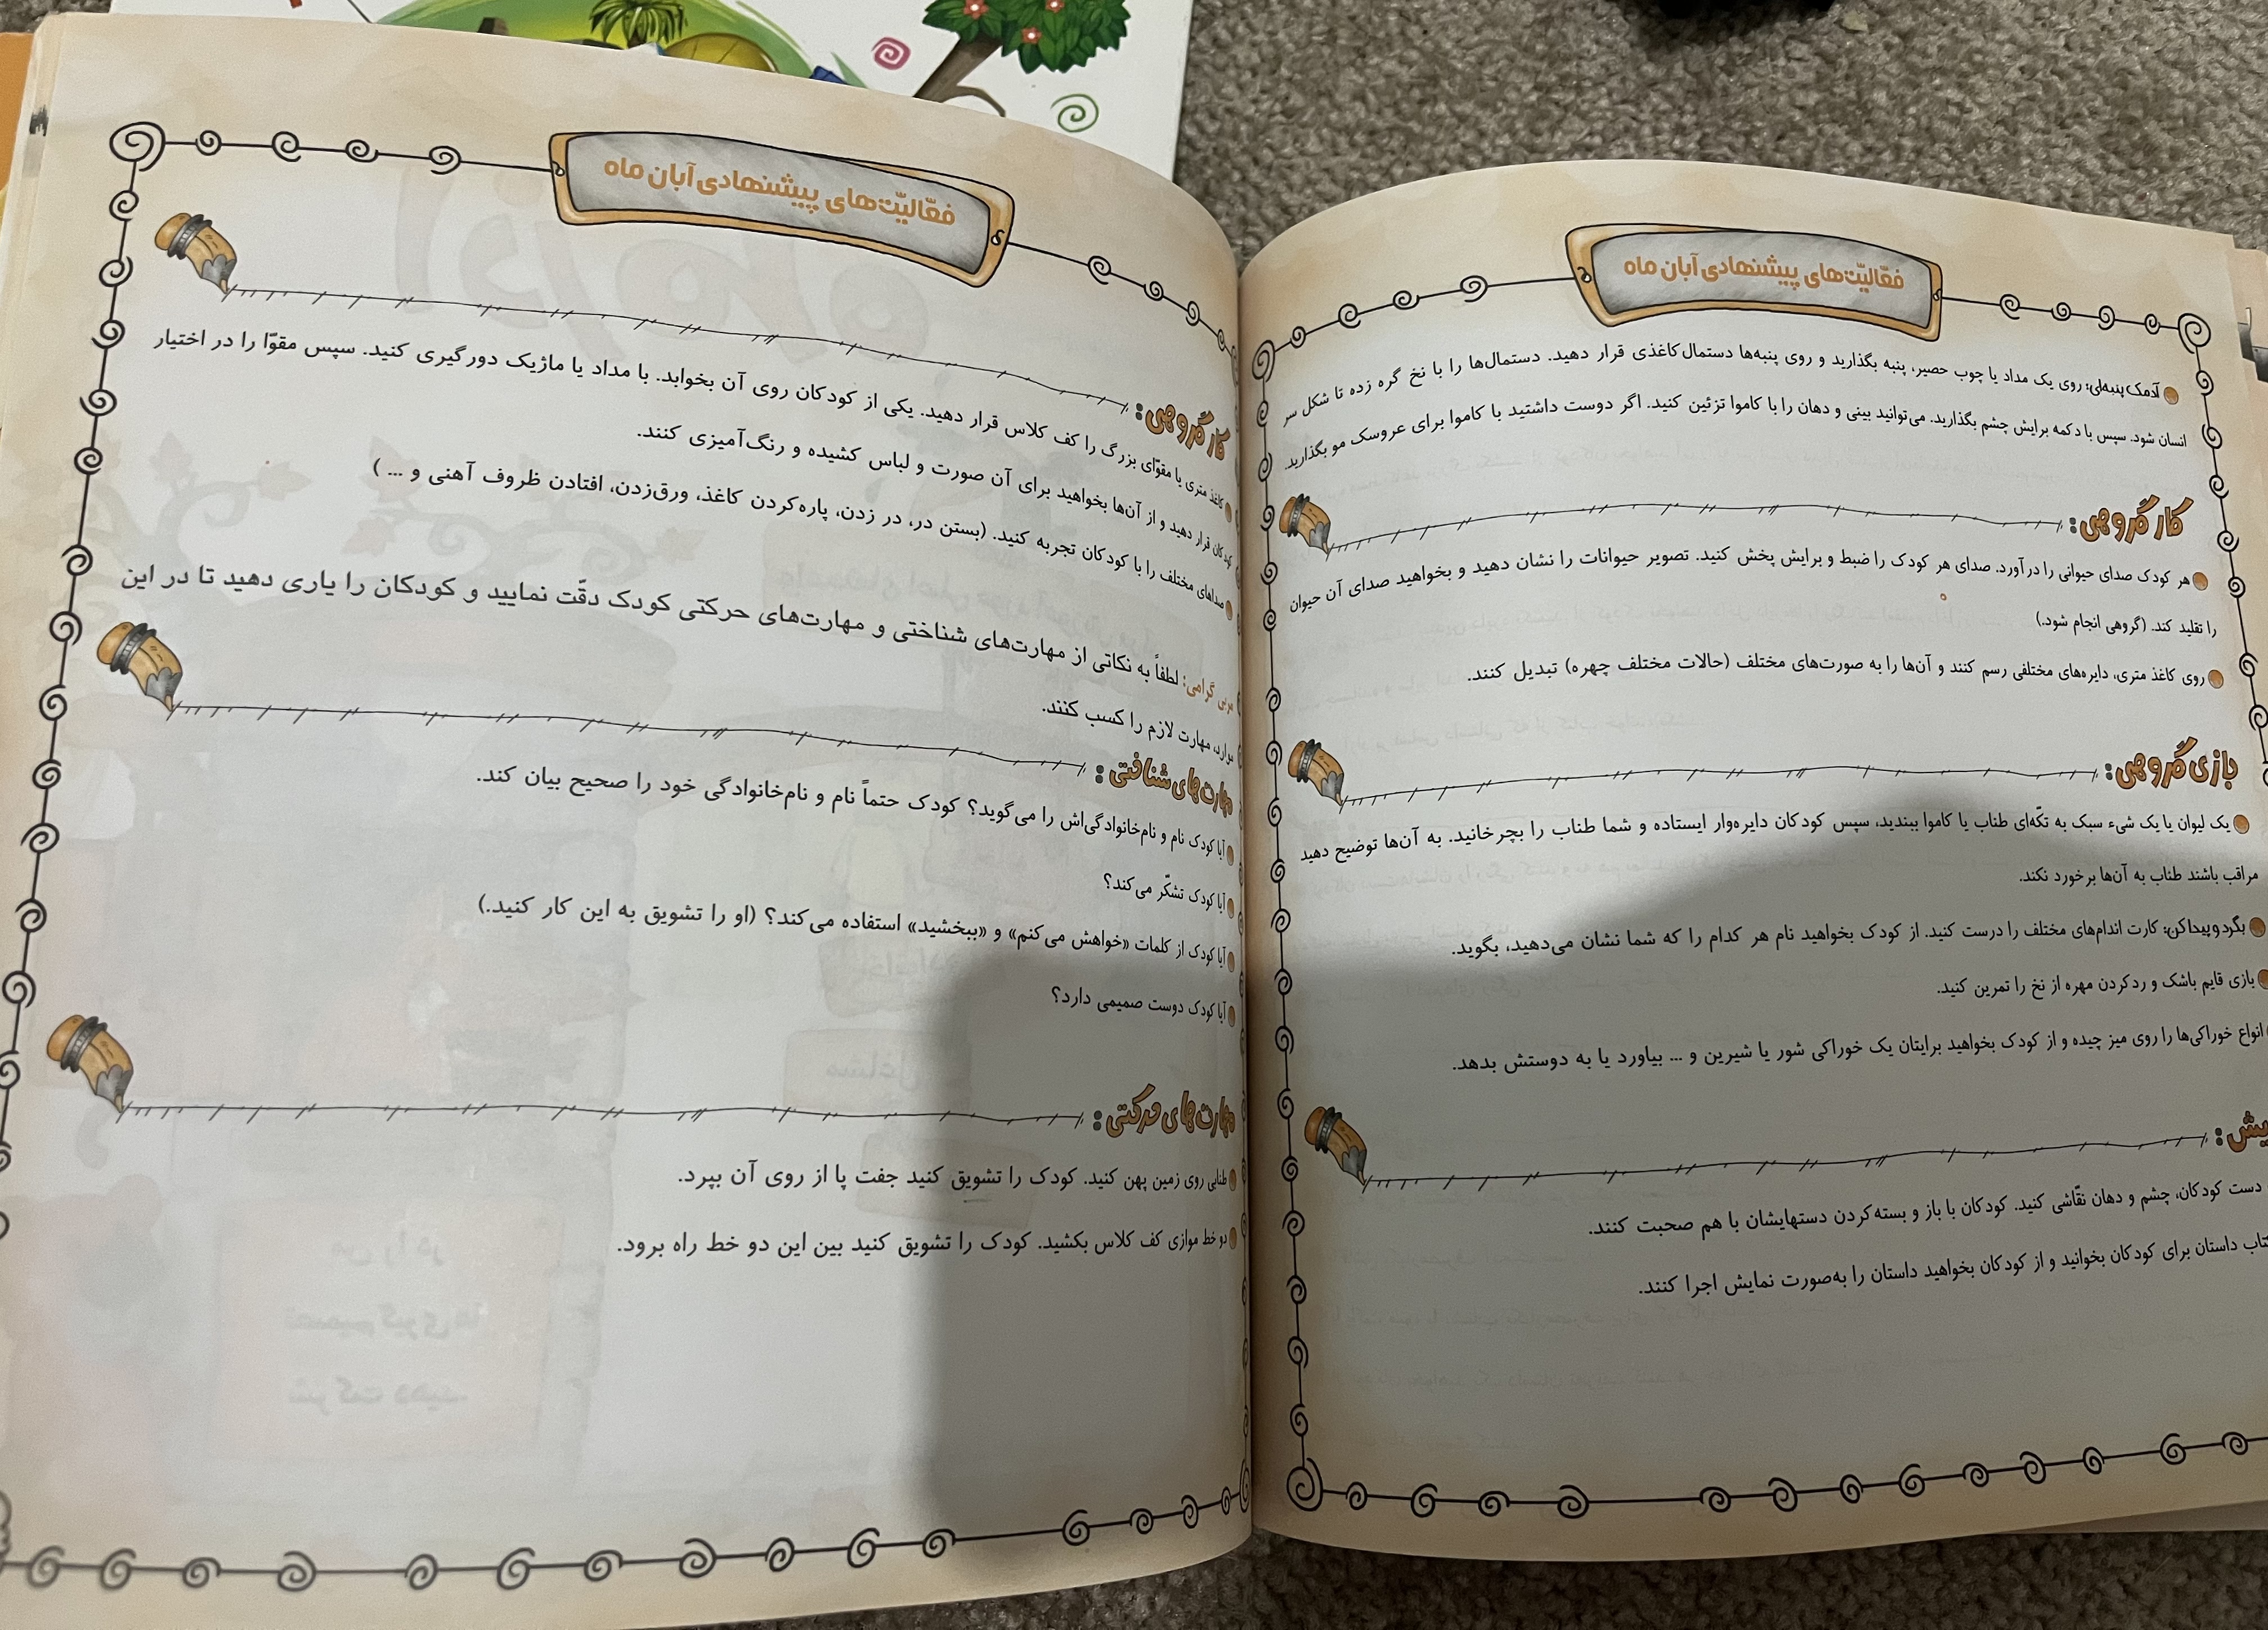 فعّالیّت‌های پیشنهادی آبان ماه
آدمک پنبه‌ای: روی یک مداد یا چوب حصیر، پنبه بگذارید و روی پنبه‌ها دستمال کاغذی قرار دهید. دستمال‌ها را با نخ گره زده تا شکل سر
انسان شود. سپس با دکمه برایش چشم بگذارید. می‌توانید بینی و دهان را با کاموا تزئین کنید. اگر دوست داشتید با کاموا برای عروسک مو بگذارید.
کار گروهی:
هر کودک صدای حیوانی را درآورد. صدای هر کودک را ضبط و برایش پخش کنید. تصویر حیوانات را نشان دهید و بخواهید صدای آن حیوان
را تقلید کند. (گروهی انجام شود.)
روی کاغذ متری، دایره‌های مختلفی رسم کنند و آن‌ها را به صورت‌های مختلف (حالات مختلف چهره) تبدیل کنند.
بازی گروهی:
یک لیوان یا یک شیء سبک به تکّه‌ای طناب یا کاموا ببندید، سپس کودکان دایره‌وار ایستاده و شما طناب را بچرخانید. به آن‌ها توضیح دهید
مراقب باشند طناب به آن‌ها برخورد نکند.
بگرد و پیدا کن: کارت اندام‌های مختلف را درست کنید. از کودک بخواهید نام هر کدام را که شما نشان می‌دهید، بگوید.
بازی قایم باشک و رد کردن مهره از نخ را تمرین کنید.
انواع خوراکی‌ها را روی میز چیده و از کودک بخواهید برایتان یک خوراکی شور یا شیرین و ... بیاورد یا به دوستش بدهد.
دست کودکان، چشم و دهان نقّاشی کنید. کودکان با باز و بسته کردن دستهایشان با هم صحبت کنند.
داستان برای کودکان بخوانید و از کودکان بخواهید داستان را به‌صورت نمایش اجرا کنند.
فعّالیّت‌های پیشنهادی آبان ماه
کار گروهی:
کاغذ متری یا مقوّای بزرگ را کف کلاس قرار دهید. یکی از کودکان روی آن بخوابد. با مداد یا ماژیک دورگیری کنید. سپس مقوّا را در اختیار
کودکان قرار دهید و از آن‌ها بخواهید برای آن صورت و لباس کشیده و رنگ‌آمیزی کنند.
صداهای مختلف را با کودکان تجربه کنید. (بستن در، در زدن، پاره‌کردن کاغذ، ورق‌زدن، افتادن ظروف آهنی و ... )
مربی گرامی: لطفاً به نکاتی از مهارت‌های شناختی و مهارت‌های حرکتی کودک دقّت نمایید و کودکان را یاری دهید تا در این
موارد، مهارت لازم را کسب کنند.
مهارت‌های شناختی:
آیا کودک نام و نام‌خانوادگی‌اش را می‌گوید؟ کودک حتماً نام و نام‌خانوادگی خود را صحیح بیان کند.
آیا کودک تشکّر می‌کند؟
آیا کودک از کلمات «خواهش می‌کنم» و «ببخشید» استفاده می‌کند؟ (او را تشویق به این کار کنید.)
آیا کودک دوست صمیمی دارد؟
مهارت‌های حرکتی:
طنابی روی زمین پهن کنید. کودک را تشویق کنید جفت پا از روی آن بپرد.
دو خط موازی کف کلاس بکشید. کودک را تشویق کنید بین این دو خط راه برود.